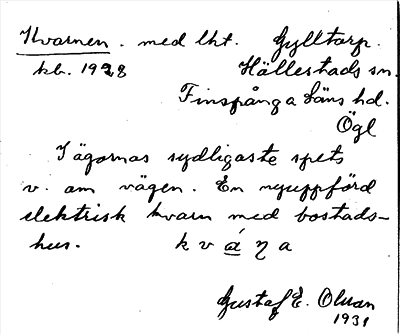 Kvarnen. med lht. Gylltorp.
kb. 1928 Hällestads sn.
Finspånga läns hd.
Ögl
I ägornas sydligaste spets
v. om vägen. En nyuppförd
elektrisk kvarn med bostads-
hus. k v á ŋ a
Gustaf E. Olsson
1931